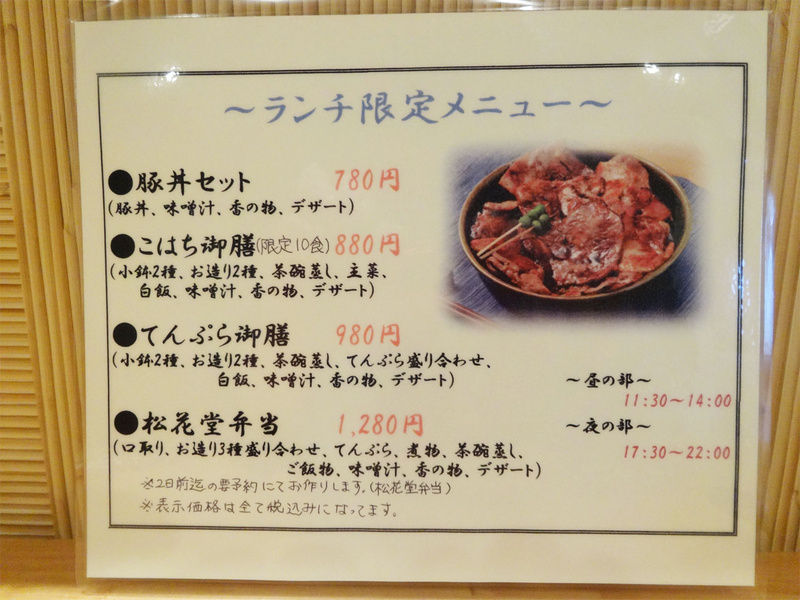 ～ランチ限定メニュー～
●豚丼セット 780円
(豚丼、味噌汁、香の物、デザート)
●こはち御膳(限定10食) 880円
(小鉢2種、お造り2種、茶碗蒸し、主菜、
白飯、味噌汁、香の物、デザート)
●てんぷら御膳 980円
(小鉢2種、お造り2種、茶碗蒸し、てんぷら盛り合わせ、
白飯、味噌汁、香の物、デザート)
●松花堂弁当 1,280円
(口取り、お造り3種盛り合わせ、てんぷら、煮物、茶碗蒸し、
ご飯物、味噌汁、香の物、デザート)
※2日前迄の要予約にてお作りします。(松花堂弁当)
※表示価格は全て税込みになってます。
～昼の部～
11:30～14:00
～夜の部～
17:30～22:00